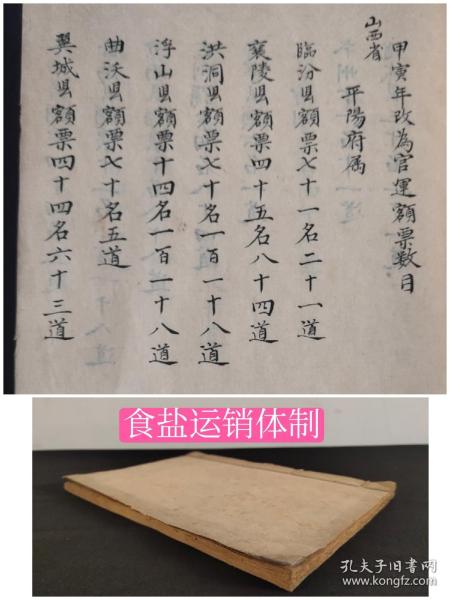 甲寅年改為官運額票数目
山西省
平陽府属
臨汾县額票七十一名二十一道
襄陵县額票四十五名八十四道
洪洞县額票七十名一百一十八道
浮山县額票十四名一百一十八道
曲沃县額票七十名五道
翼城县額票四十四名六十三道
食盐运销体制
孔夫子旧书网
www.kongfz.com